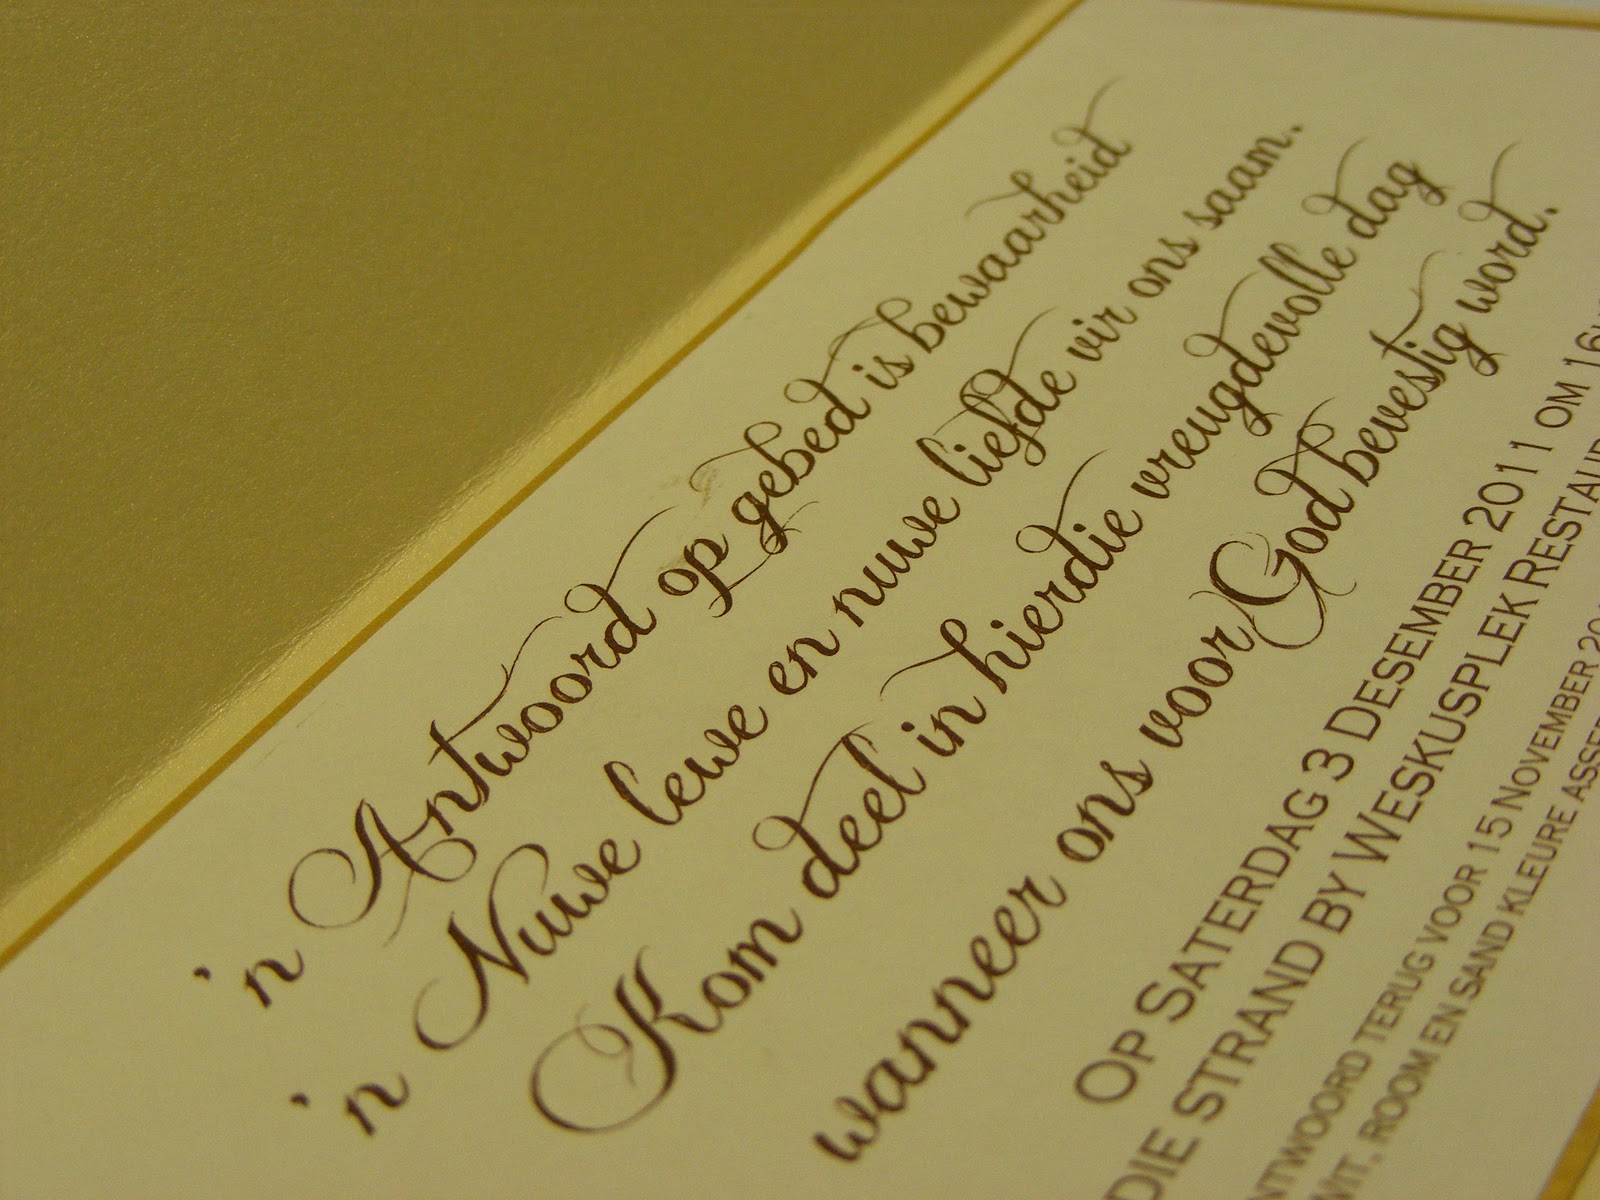 'n Antwoord op gebed is bewaarheid
'n Nuwe lewe en nuwe liefde vir ons saam.
Kom deel in hierdie vreugdevolle dag
wanneer ons voor God bevestig word.
Op Saterdag 3 Desember 2011 om
die strand by Weskusplek
terug voor 15 November
room en sand kleure